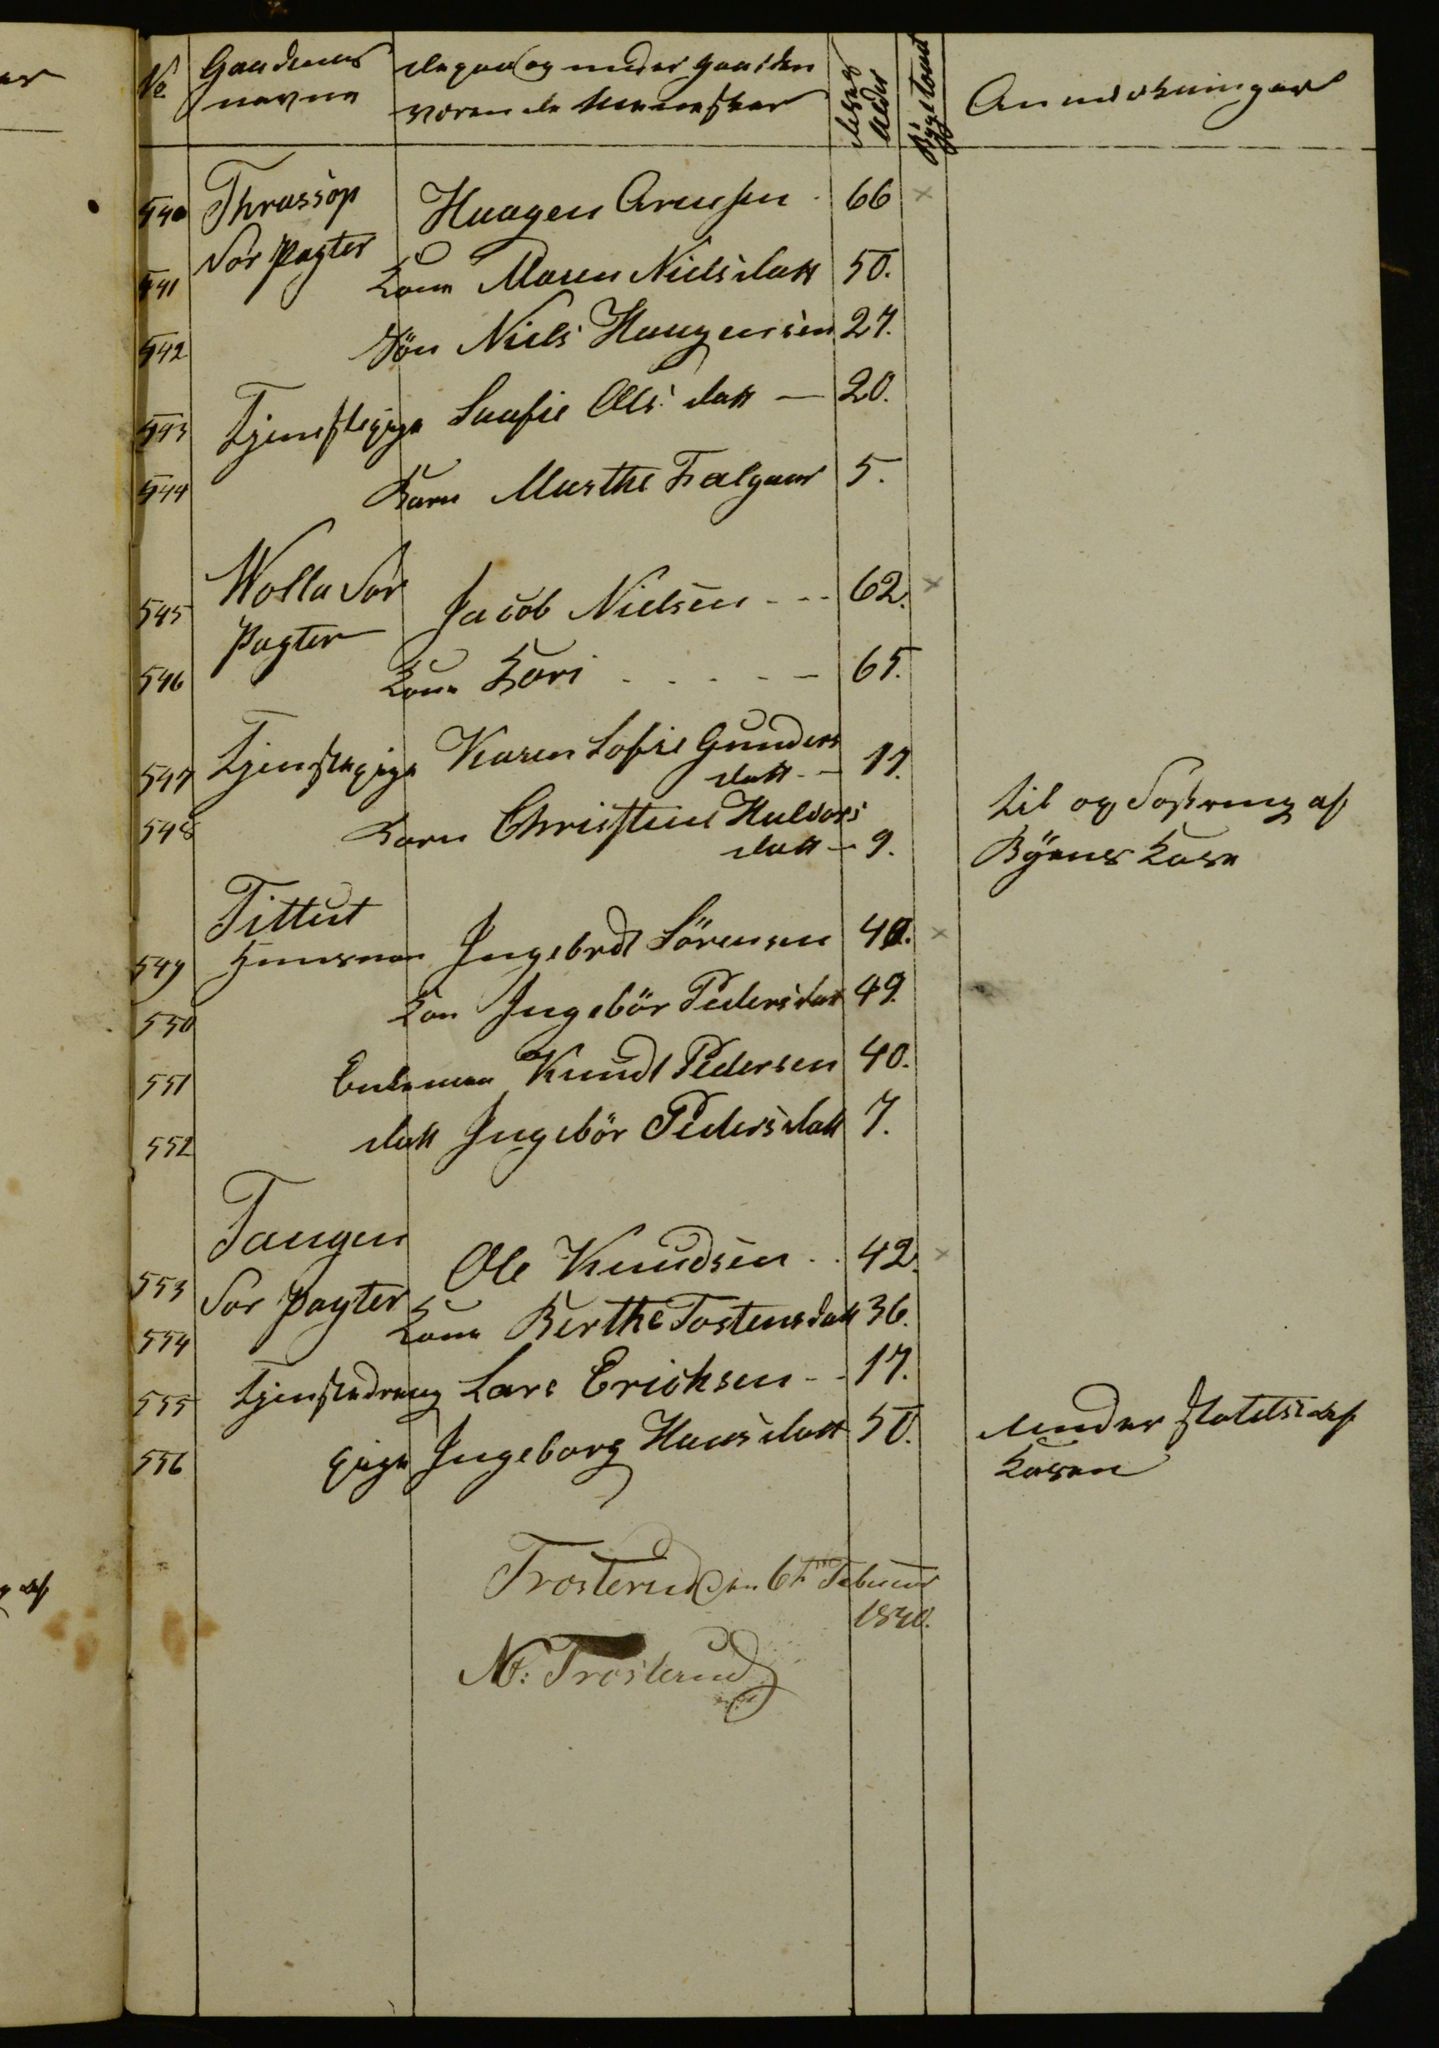 No Gaardenes navne de paa og under gaarden værende Mennesker deres Alder Anmerkninger
540 Thrassop Haagen Arnesen 66 ×
541 For Pagter Kone Maren Nielsdatt 50.
542 Søn Niels Haagensen 27.
543 Tjenstepige Saafie Ols datt — 20.
544 Barn Marthe 5.
545 Wolla For Jacob Nielsen - - - 62. ×
Pagter
546 Kone Kari - - - - - 65.
547 Tjenstepige Karen Sofie Gunders
datt - - 17.
548 Barn Christine Halvors
datt - 9.
til opfostring af
Byens Kase
Tittut
549 Huusman Ingebrdt Sörensen 40. ×
550 Kon Ingebör Pedersdat 49.
551 Enkeman Knudt Pedersen 40.
552 datt Ingebör Pedersdatt 7.
Tangen
553 Ole Knudsen - - 42. ×
For Pagter
554 Kone Berthe Tostensdatt 36.
555 Tjenstedreng Lars Erichsen - - 17.
556 pige Ingeborg Hansdatt 50.
Understøttelse af
Kasen
Trosterud den 6te Februar
1840.
N: Trosterud